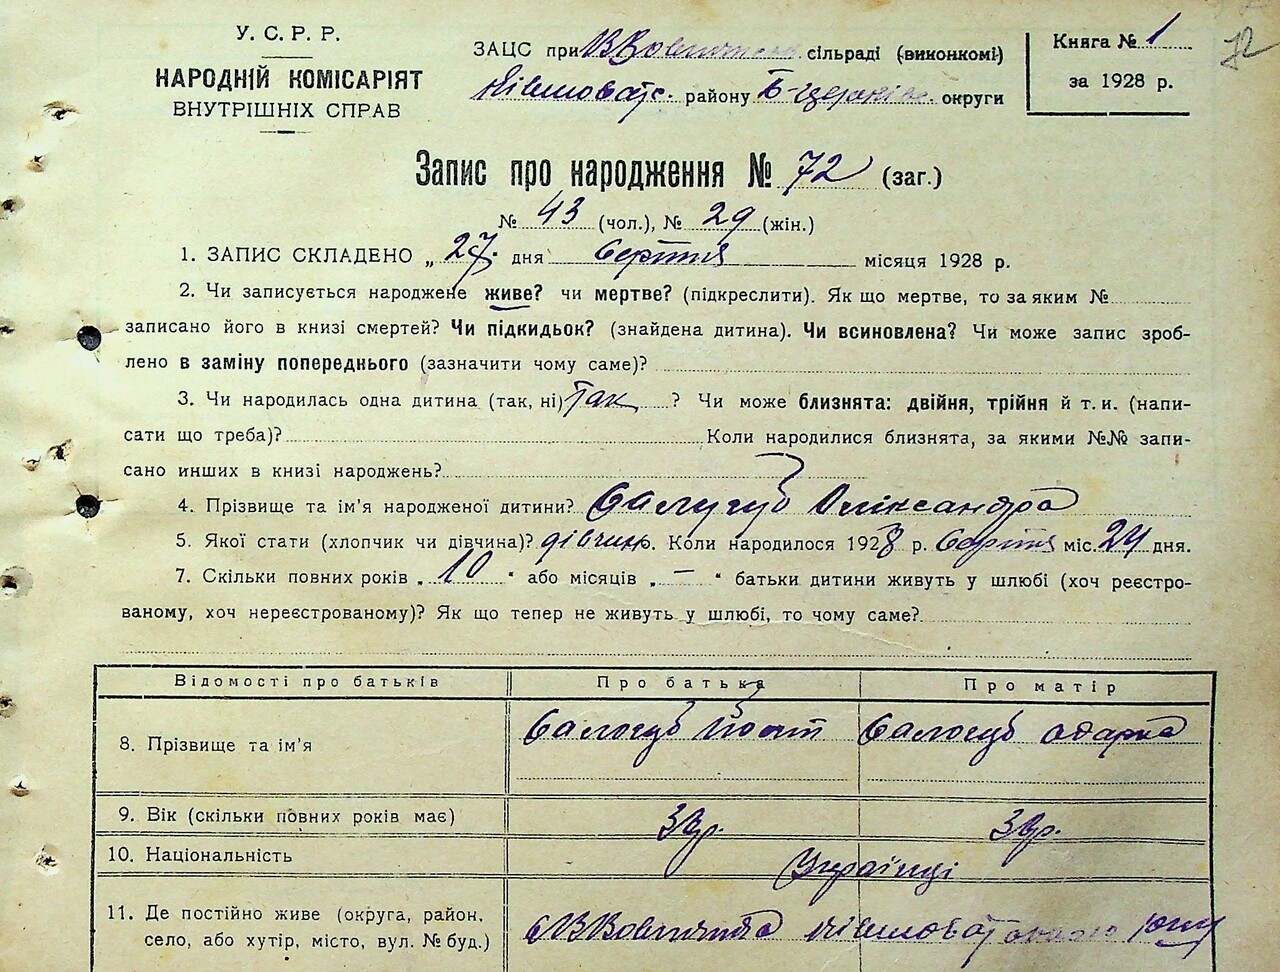 У. С. Р. Р.
НАРОДНІЙ КОМІСАРІЯТ
ВНУТРІШНІХ СПРАВ
ЗАЦС при сільраді (виконкомі)
району Б-церків. округи
Книга № 1
за 1928 р.
72
Запис про народження № 72 (заг.)
№ 43 (чол.), № 29 (жін.)
1. ЗАПИС СКЛАДЕНО „ 27. дня серпня місяця 1928 р.
2. Чи записується народжене живе? чи мертве? (підкреслити). Як що мертве, то за яким №
записано його в книзі смертей? Чи підкидьок? (знайдена дитина). Чи всиновлена? Чи може запис зроб-
лено в заміну попереднього (зазначити чому саме)?
3. Чи народилась одна дитина (так, ні) Так ? Чи може близнята: двійня, трійня й т. и. (напи-
сати що треба)? Коли народилися близнята, за якими №№ запи-
сано инших в книзі народжень?
4. Прізвище та ім’я народженої дитини? Салугуб Олександра
5. Якої стати (хлопчик чи дівчина)? Коли народилося 1928 р. серпня міс. 24 дня.
7. Скільки повних років „ 10 “ або місяців „ — “ батьки дитини живуть у шлюбі (хоч реєстро-
ваному, хоч нереєстрованому)? Як що тепер не живуть у шлюбі, то чому саме?
Відомості про батьків Про батька Про матір
8. Прізвище та ім’я Салогуб Салогуб Одарка
9. Вік (скільки повних років має)
10. Національність Українці
11. Де постійно живе (округа, район,
село, або хутір, місто, вул. № буд.)